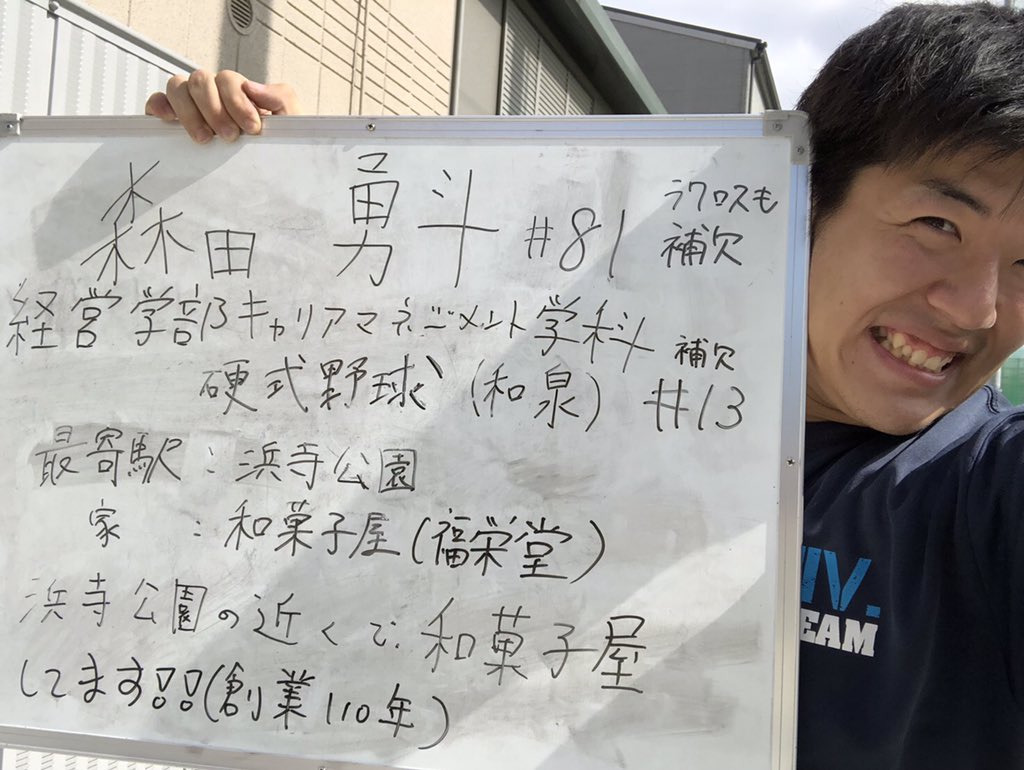 森田 勇斗 #81 ラクロスも補欠
経営学部キャリアマネジメント学科
硬式野球(和泉) 補欠 #13
最寄駅:浜寺公園
家:和菓子屋(福栄堂)
浜寺公園の近くで和菓子屋
してます!!(創業110年)
IV.
EAM